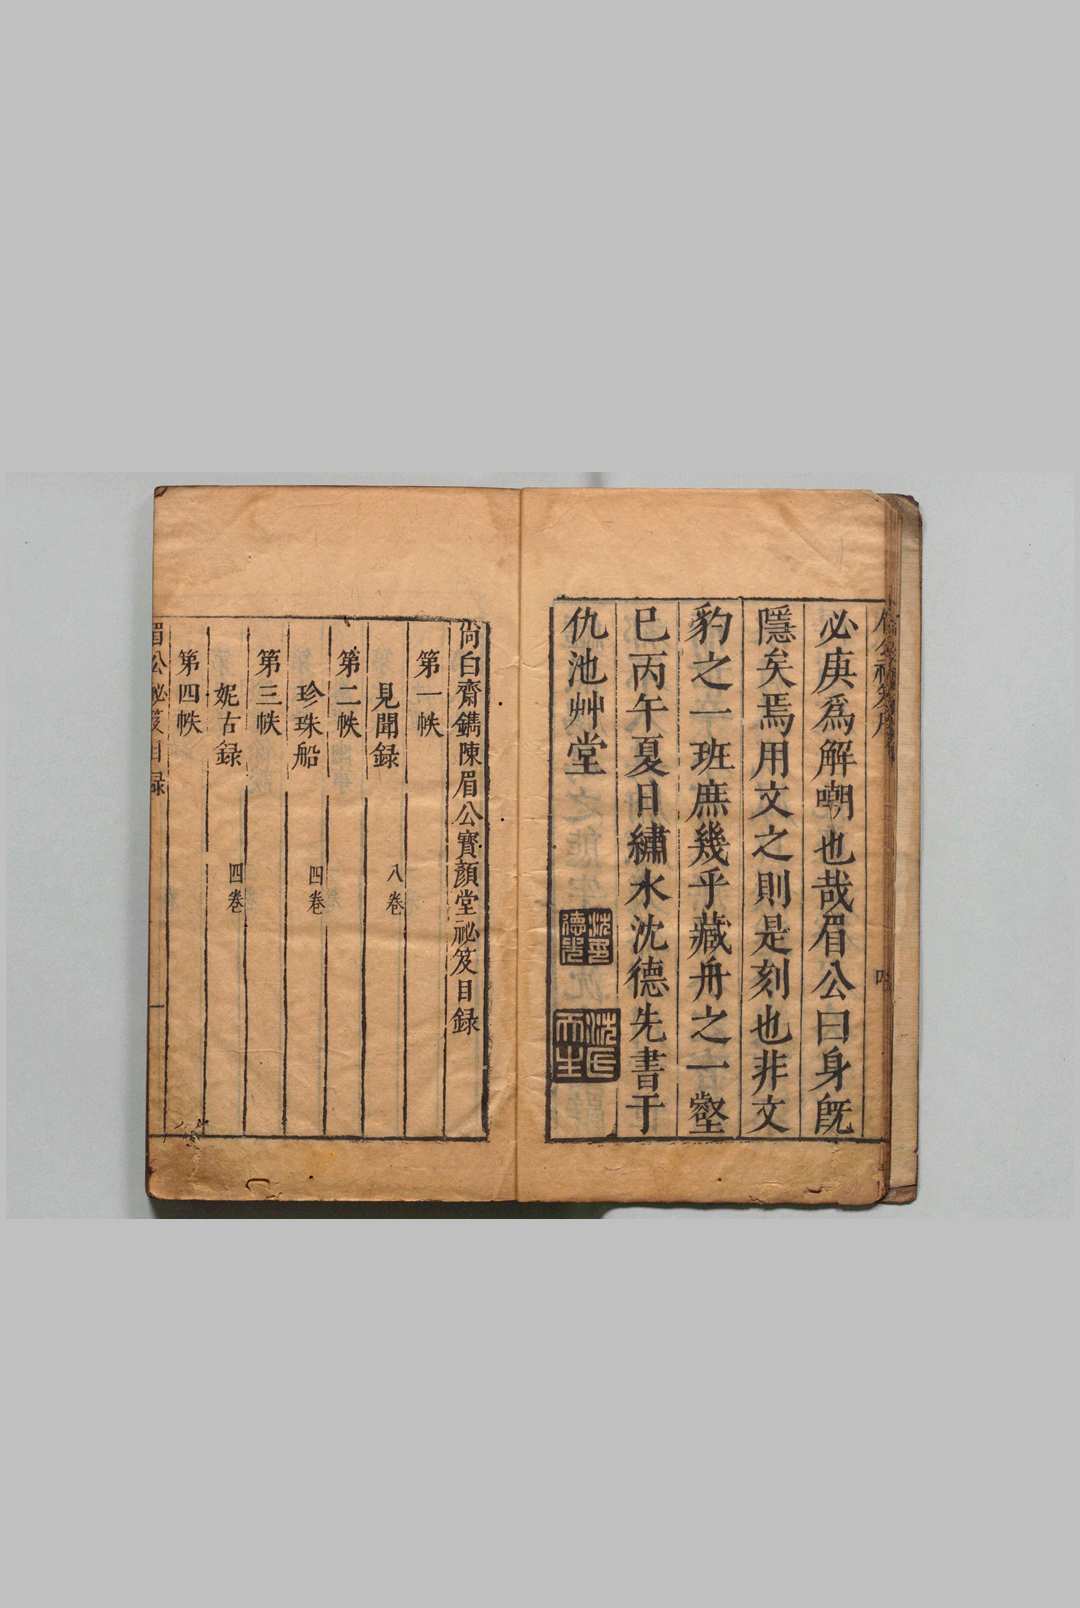 必庚爲解嘲也哉眉公曰身旣
隱矣焉用文之則是刻也非文
豹之一班庶幾乎藏舟之一壑
巳丙午夏日繡水沈德先書于
仇池艸堂
尚白齋鐫陳眉公寶顏堂祕笈目録
第一帙
見聞録 八卷
第二帙
珍珠船 四卷
第三帙
妮古録 四卷
第四帙
眉公祕笈目録